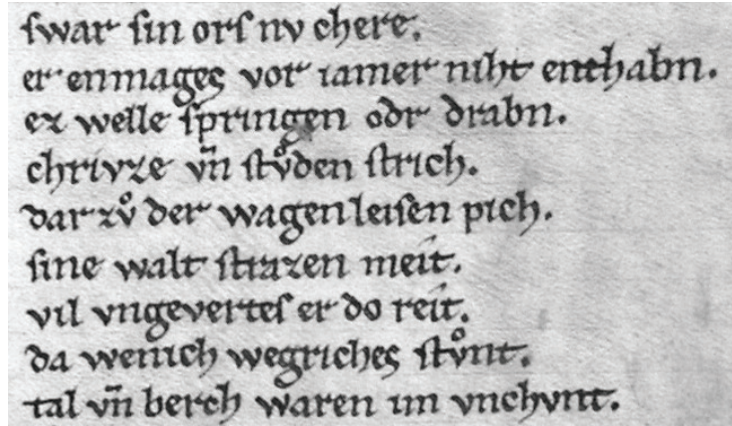 ſwar ſin orſ nv chere.
er enmages vor iamer niht enthabn.
ez welle ſpringen odr drabn.
chrivze vn̄ ſtvͦden ſtrich.
dar zvͦ der wagenleiſen pich.
ſine walt ſtrazen meit.
vil vngeverteſ er do reit.
da wenich wegriches ſtvͦnt.
tal vn̄ berch waren im vnchvnt.